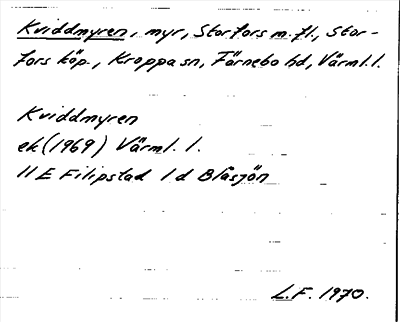 Kviddmyren, myr, Storfors m.fl., Stor-
fors köp., Kroppa sn, Färnebo hd, Värml. l.
Kviddmyren
ek (1969) Värml. l.
11E Filipstad 1d Blåsjön
L.F. 1970.